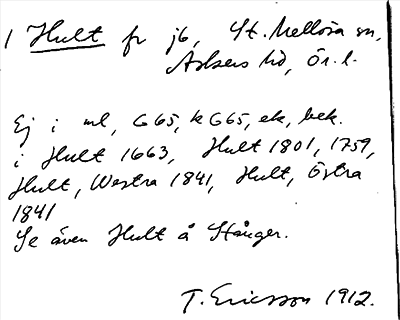 1 Hult fr jb, St. Mellösa sn,
Askers hd, Ör. l.
Ej i ml, G65, k G65, ek, bek.
i Hult 1663, Hult 1801, 1759,
Hult, Westra 1841, Hult, Östra
1841
Se även Hult å Stånger.
T. Ericsson 1912.